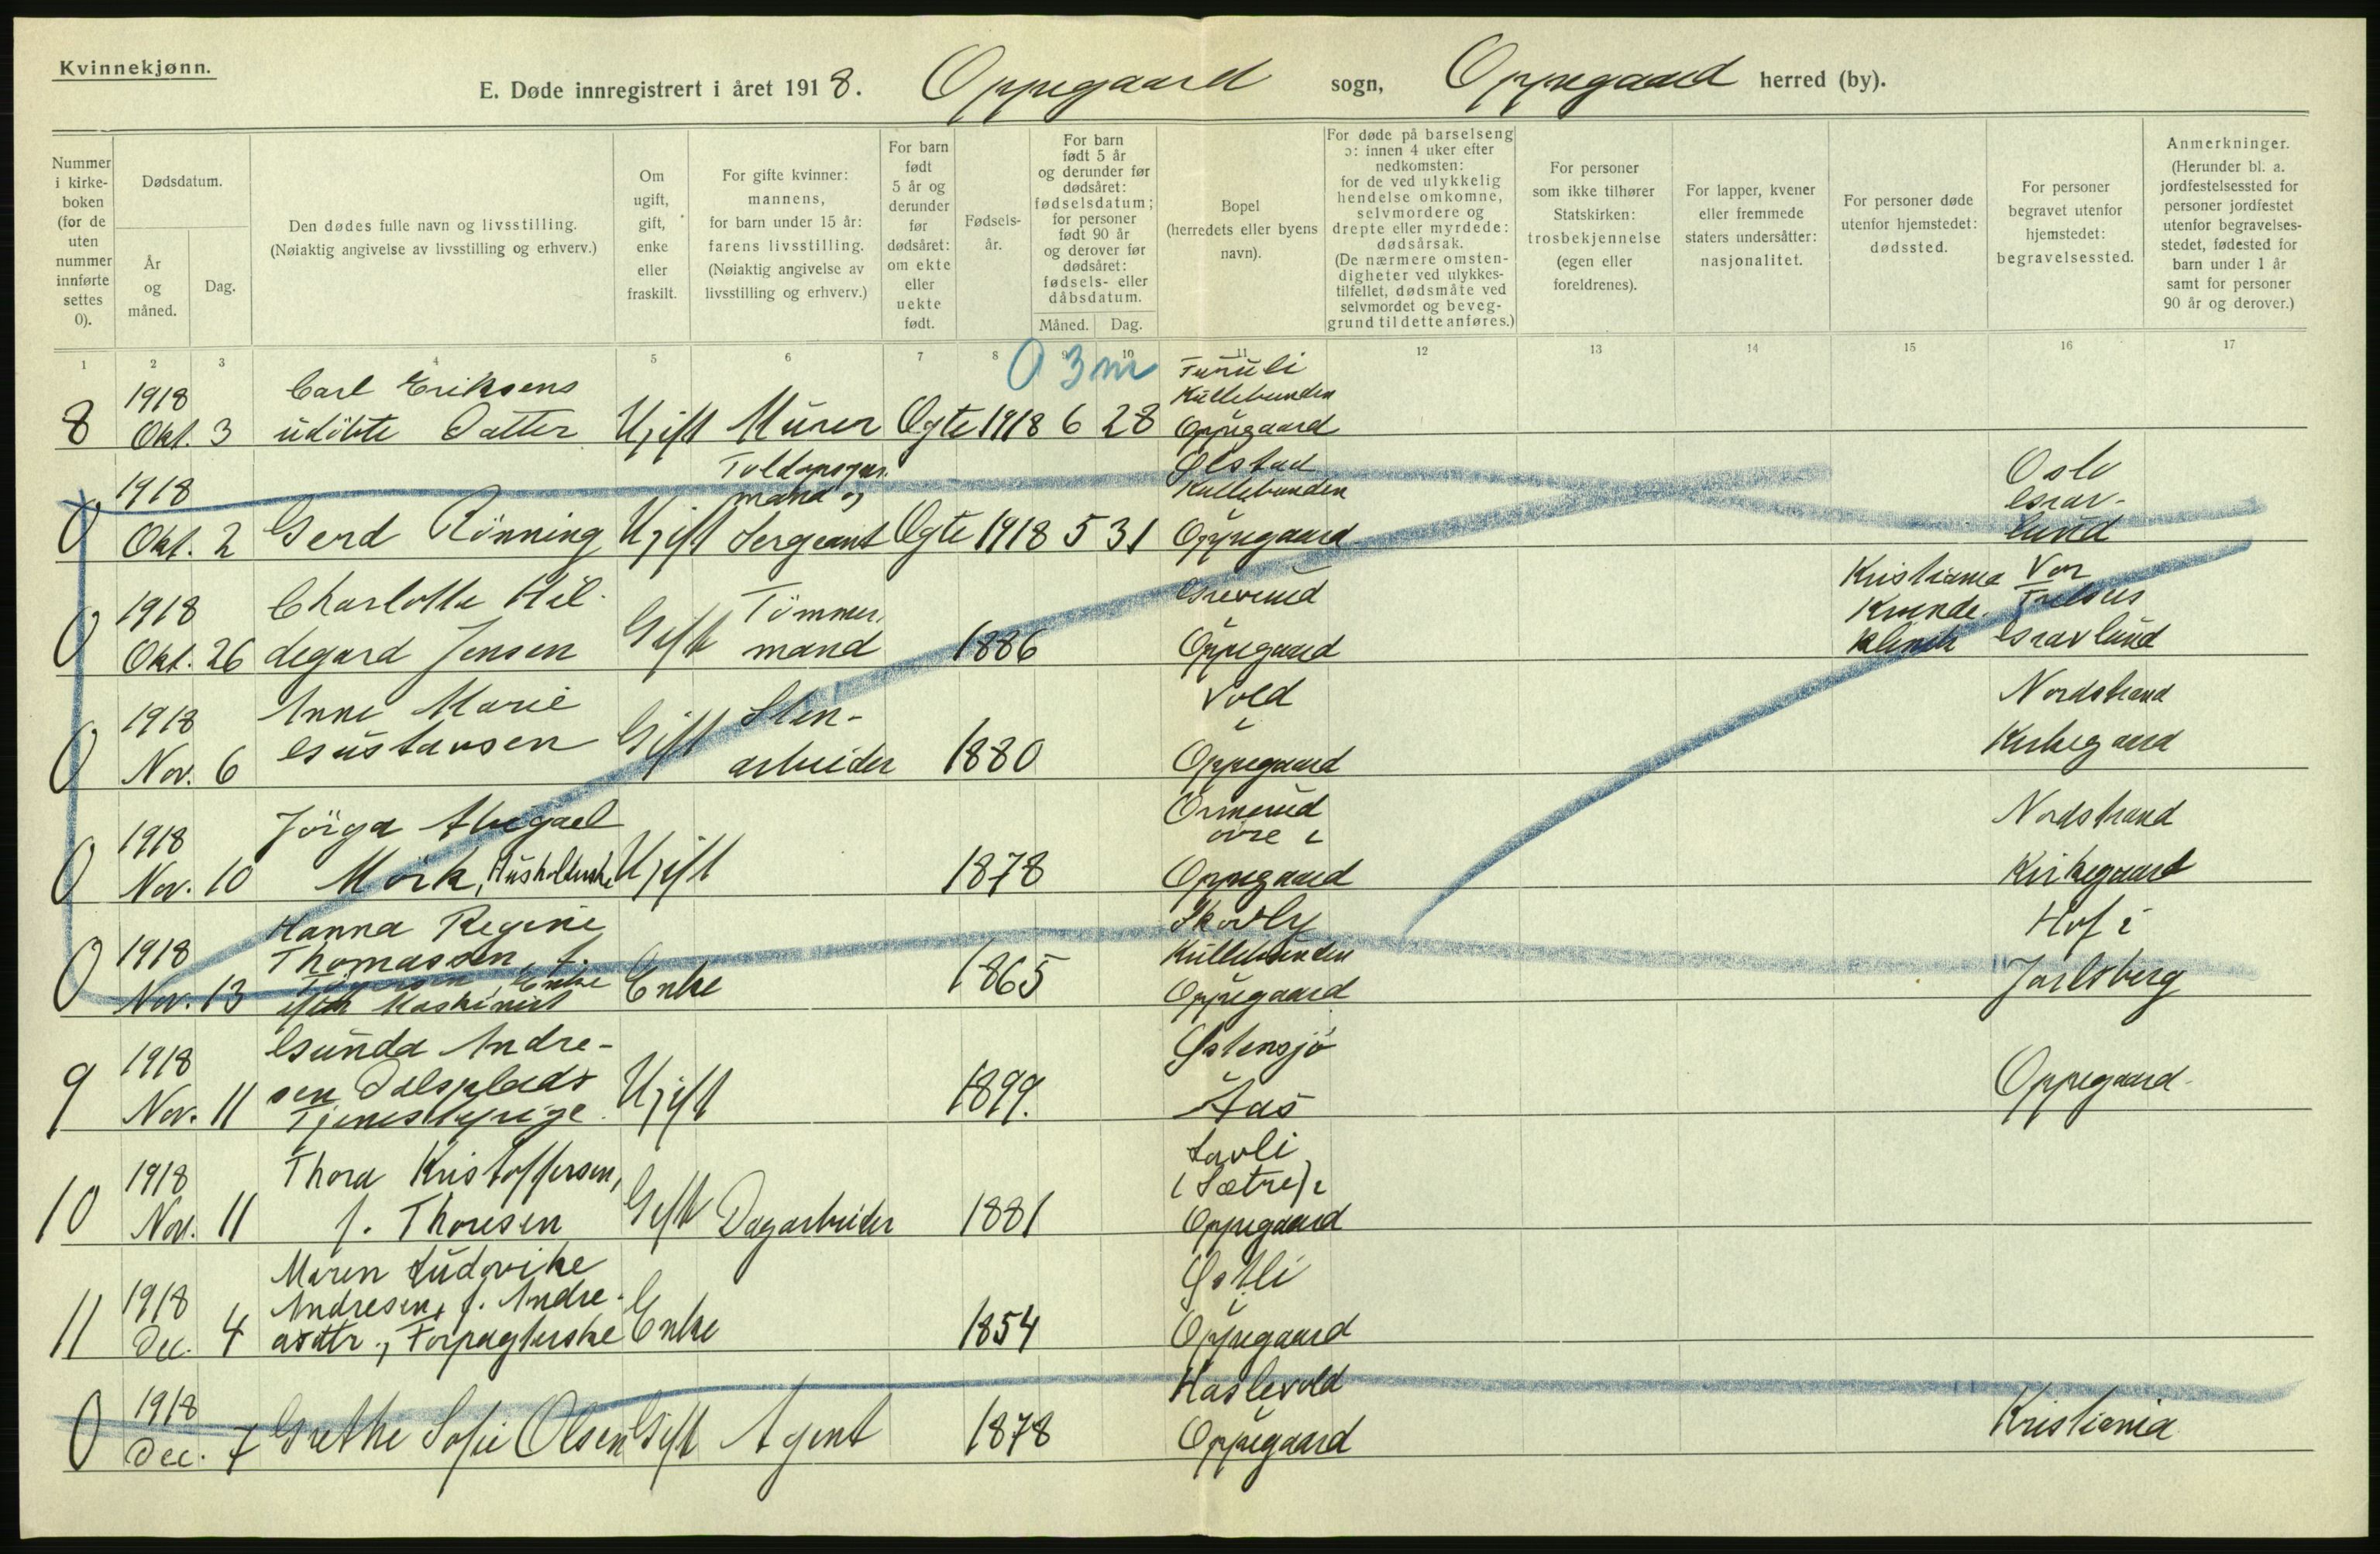 Kvinnekjønn.
E. Døde innregistrert i året 1918. Oppegaard sogn, Oppegaard herred (by).
Nummer i kirke-boken (for de uten nummer innførte settes 0).
Dødsdatum.
År og måned.
Dag.
Den dødes fulle navn og livsstilling.
(Nøiaktig angivelse av livsstilling og erhverv.)
Om ugift, gift, enke eller fraskilt.
For gifte kvinner: mannens, for barn under 15 år: farens livsstilling. (Nøiaktig angivelse av livsstilling og erhverv.)
For barn født 5 år og derunder før dødsåret: om ekte eller uekte født.
Fødsels-år.
For barn født 5 år og derunder før dødsåret: fødselsdatum; for personer født 90 år og derover før dødsåret: fødsels- eller dåbsdatum.
Måned. Dag.
Bopel (herredets eller byens navn).
For døde på barselseng ɔ: innen 4 uker efter nedkomsten: for de ved ulykkelig hendelse omkomne, selvmordere og drepte eller myrdede: dødsårsak. (De nærmere omsten-digheter ved ulykkes-tilfellet, dødsmåte ved selvmordet og beveg-grund til dette anføres.)
For personer som ikke tilhører Statskirken: trosbekjennelse (egen eller foreldrenes).
For lapper, kvener eller fremmede staters undersåtter: nasjonalitet.
For personer døde utenfor hjemstedet: dødssted.
For personer begravet utenfor hjemstedet: begravelsessted.
Anmerkninger. (Herunder bl. a. jordfestelsessted for personer jordfestet utenfor begravelses-stedet, fødested for barn under 1 år samt for personer 90 år og derover.)
1 2 3 4 5 6 7 8 9 10 11 12 13 14 15 16 17
0 3m
8 1918 Okt. 3 Carl Eriksens udöbte Datter Ugift Murer Egte 1918 6 28 Furuli Kullebunden Oppegaard
0 1918 Okt. 2 Gerd Rönning Ugift mand og Sergeant Egte 1918 5 31 Ølstad Kullebunden Oppegaard Oslo Gravlund
0 1918 Okt. 26 Charlotte Hildegard Jensen Gift Tömmermand 1886 Greverud Oppegaard Kristiania Kvinde klinik Vor Frelsers Gravlund
0 1918 Nov. 6 Anne Marie Gustavsen Gift Stenarbeider 1880 Vold i Oppegaard Nordstrand Kirkegaard
0 1918 Nov. 10 Jörga Abigael Mörk, Husholderske Ugift 1878 Ormerud övre i Oppegaard Nordstrand Kirkegaard
0 1918 Nov. 13 Hanna Regine Thomassen, f. Enke efter Maskinist Enke 1865 Skovly Kullebunden Oppegaard Hof i Jarlsberg
9 1918 Nov. 11 Gunda Andresen Dalsplads Tjenestepige. Ugift 1899. Østensjö i Aas Oppegaard
10 1918 Nov. 11 Thora Kristoffersen, f. Thoresen Gift Dagarbeider 1881 Lovli (Sætre) i Oppegaard
11 1918 Dec. 4 Maren Ludovike Andresen, f. Andreasdtr., Forpagterske Enke 1854 Østli i Oppegaard
0 1918 Dec. 7 Grethe Sofie Olsen Gift Agent 1878 Haslevold i Oppegaard Kristiania